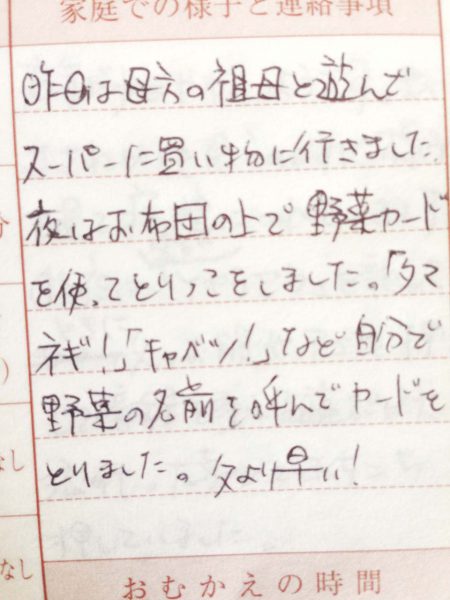 家庭での様子と連絡事項
昨日は母方の祖母と遊んで
スーパーに買い物に行きました。
夜はお布団の上で野菜カード
を使ってとりっこをしました。「タマ
ネギ!」「キャベツ!」など自分で
野菜の名前を呼んでカードを
とりました。父より早い!
なし
なし
おむかえの時間